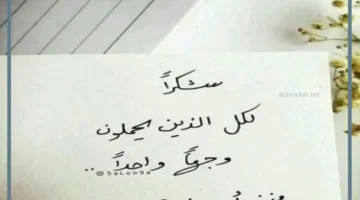 شكراً
لكل الذين يحملون
وجهاً واحداً..
@SaLoo9a